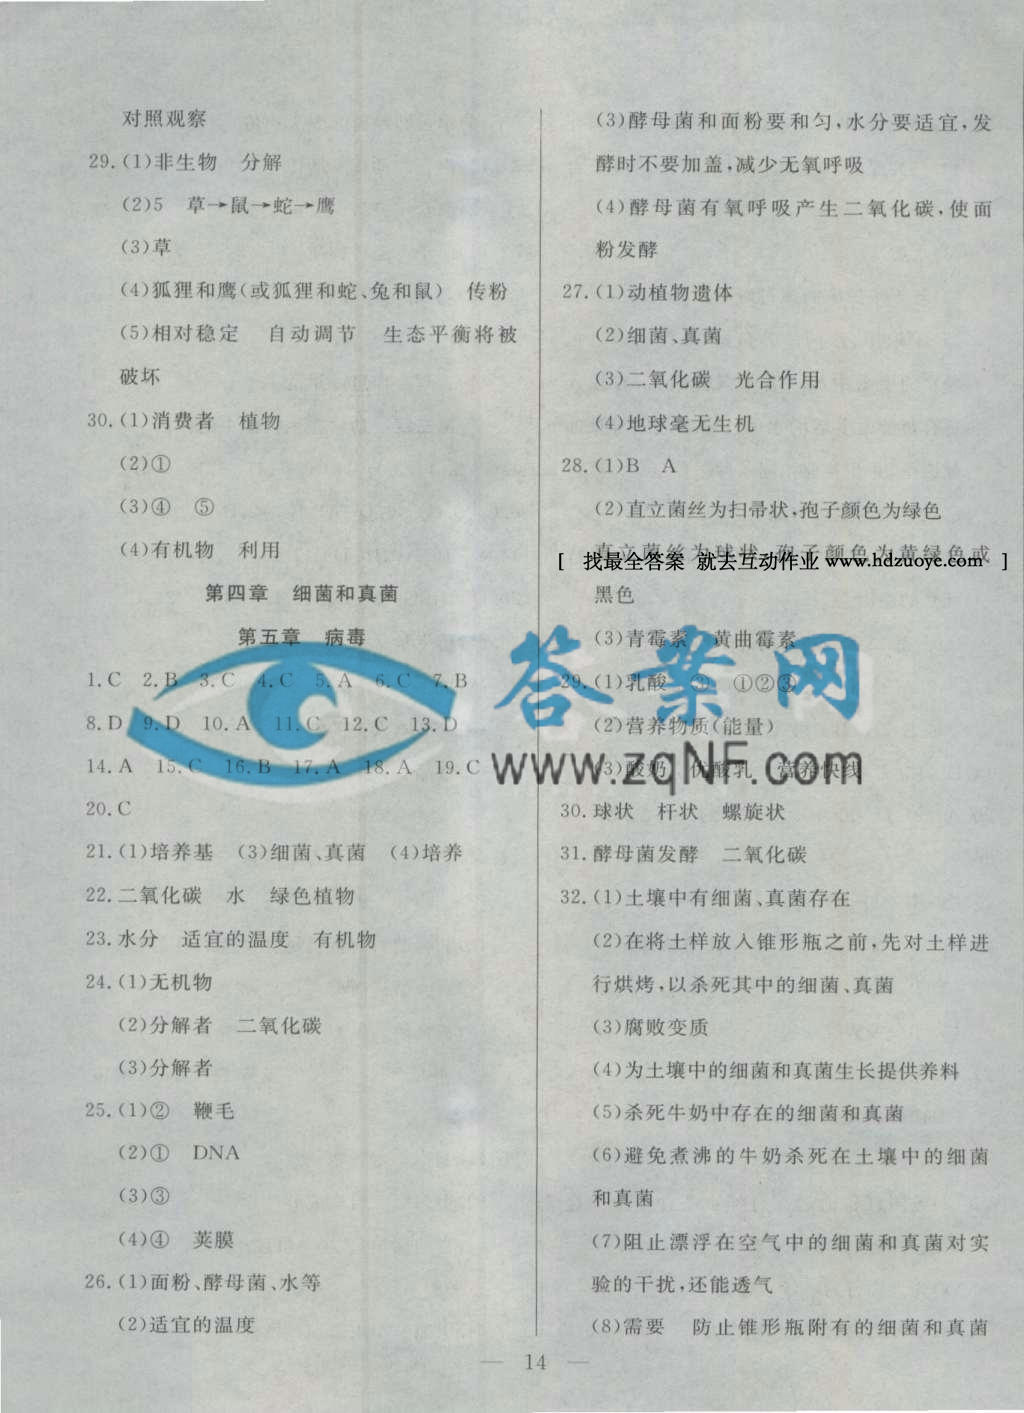 对照观察
29.(1)非生物 分解
(2)5 草→鼠→蛇→鹰
(3)草
(4)狐狸和鹰(或狐狸和蛇、兔和鼠) 传粉
(5)相对稳定 自动调节 生态平衡将被
破坏
30.(1)消费者 植物
(2)①
(3)④ ⑤
(4)有机物 利用
第四章 细菌和真菌
第五章 病毒
1.C 2.B 3.C 4.C 5.A 6.C 7.B
8.D 9.D 10.A 11.C 12.C 13.D
14.A 15.C 16.B 17.A 18.A 19.C
20.C
21.(1)培养基 (3)细菌、真菌 (4)培养
22.二氧化碳 水 绿色植物
23.水分 适宜的温度 有机物
24.(1)无机物
(2)分解者 二氧化碳
(3)分解者
25.(1)② 鞭毛
(2)① DNA
(3)③
(4)④ 荚膜
26.(1)面粉、酵母菌、水等
(2)适宜的温度
(3)酵母菌和面粉要和匀,水分要适宜,发
酵时不要加盖,减少无氧呼吸
(4)酵母菌有氧呼吸产生二氧化碳,使面
粉发酵
27.(1)动植物遗体
(2)细菌、真菌
(3)二氧化碳 光合作用
(4)地球毫无生机
28.(1)B A
(2)直立菌丝为扫帚状,孢子颜色为绿色
直立菌丝为球状,孢子颜色为黄绿色或
[ 找最全答案 就去互动作业 www.hdzuoye.com ]
黑色
(3)青霉素 黄曲霉素
答案网
29.(1)乳酸 ② ①②③
(2)营养物质(能量)
www.zqNF.com
(3)酸奶 优酸乳 营养快线
30.球状 杆状 螺旋状
31.酵母菌发酵 二氧化碳
32.(1)土壤中有细菌、真菌存在
(2)在将土样放入锥形瓶之前,先对土样进
行烘烤,以杀死其中的细菌、真菌
(3)腐败变质
(4)为土壤中的细菌和真菌生长提供养料
(5)杀死牛奶中存在的细菌和真菌
(6)避免煮沸的牛奶杀死在土壤中的细菌
和真菌
(7)阻止漂浮在空气中的细菌和真菌对实
验的干扰,还能透气
(8)需要 防止锥形瓶附有的细菌和真菌
— 14 —